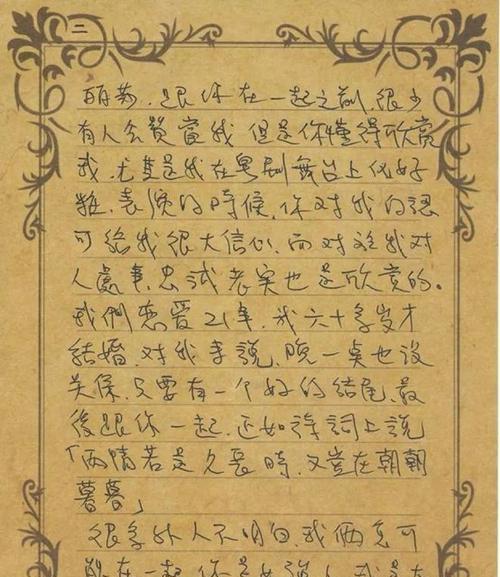 二
萌莉，跟你在一起之前，很少
有人会賛賞我，但是你懂得欣赏
我，尤其是我在粤剧舞台上
表演的時候，你对我的認
可给我很大信心，而对於我对
人處事，忠诚老实也是欣赏的。
我們恋爱21年，我六十多岁才
结婚，对我来說，晚一点也没
关係，只要有一个好的结尾，最
後跟你一起，正如诗詞上說
「两情若是久長時，又豈在朝朝
暮暮」
很多外人不明白，我俩怎可
能在一起，你是女強人，我是大